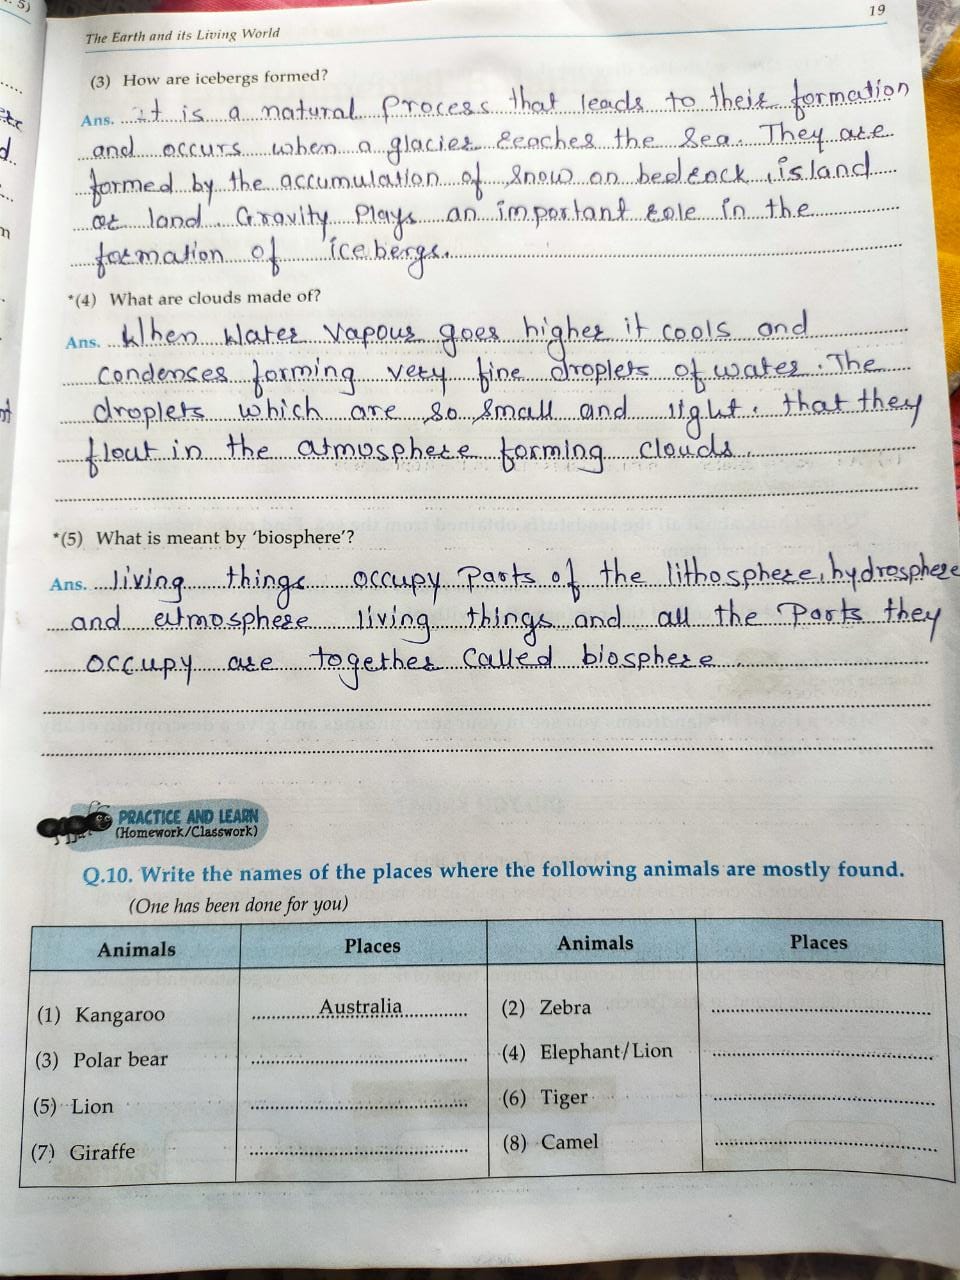 19
The Earth and its Living World
(3) How are icebergs formed?
Ans. it is a natural process that leads to their formation
and occurs when a glacier reaches the sea. They are
formed by the accumulation of snow on bedrock, island
or land. Gravity plays an important role in the
formation of icebergs.
*(4) What are clouds made of?
Ans. When water vapour goes higher it cools and
condenses forming very fine droplets of water. The
droplets which are so small and light. that they
flout in the atmosphere forming clouds.
*(5) What is meant by 'biosphere'?
Ans. living things occupy parts of the lithosphere, hydrosphere
and atmosphere living things and all the parts they
occupy are together called biosphere.
PRACTICE AND LEARN
(Homework/Classwork)
Q.10. Write the names of the places where the following animals are mostly found.
(One has been done for you)
Animals Places Animals Places
(1) Kangaroo Australia (2) Zebra
(3) Polar bear (4) Elephant/Lion
(5) Lion (6) Tiger
(7) Giraffe (8) Camel